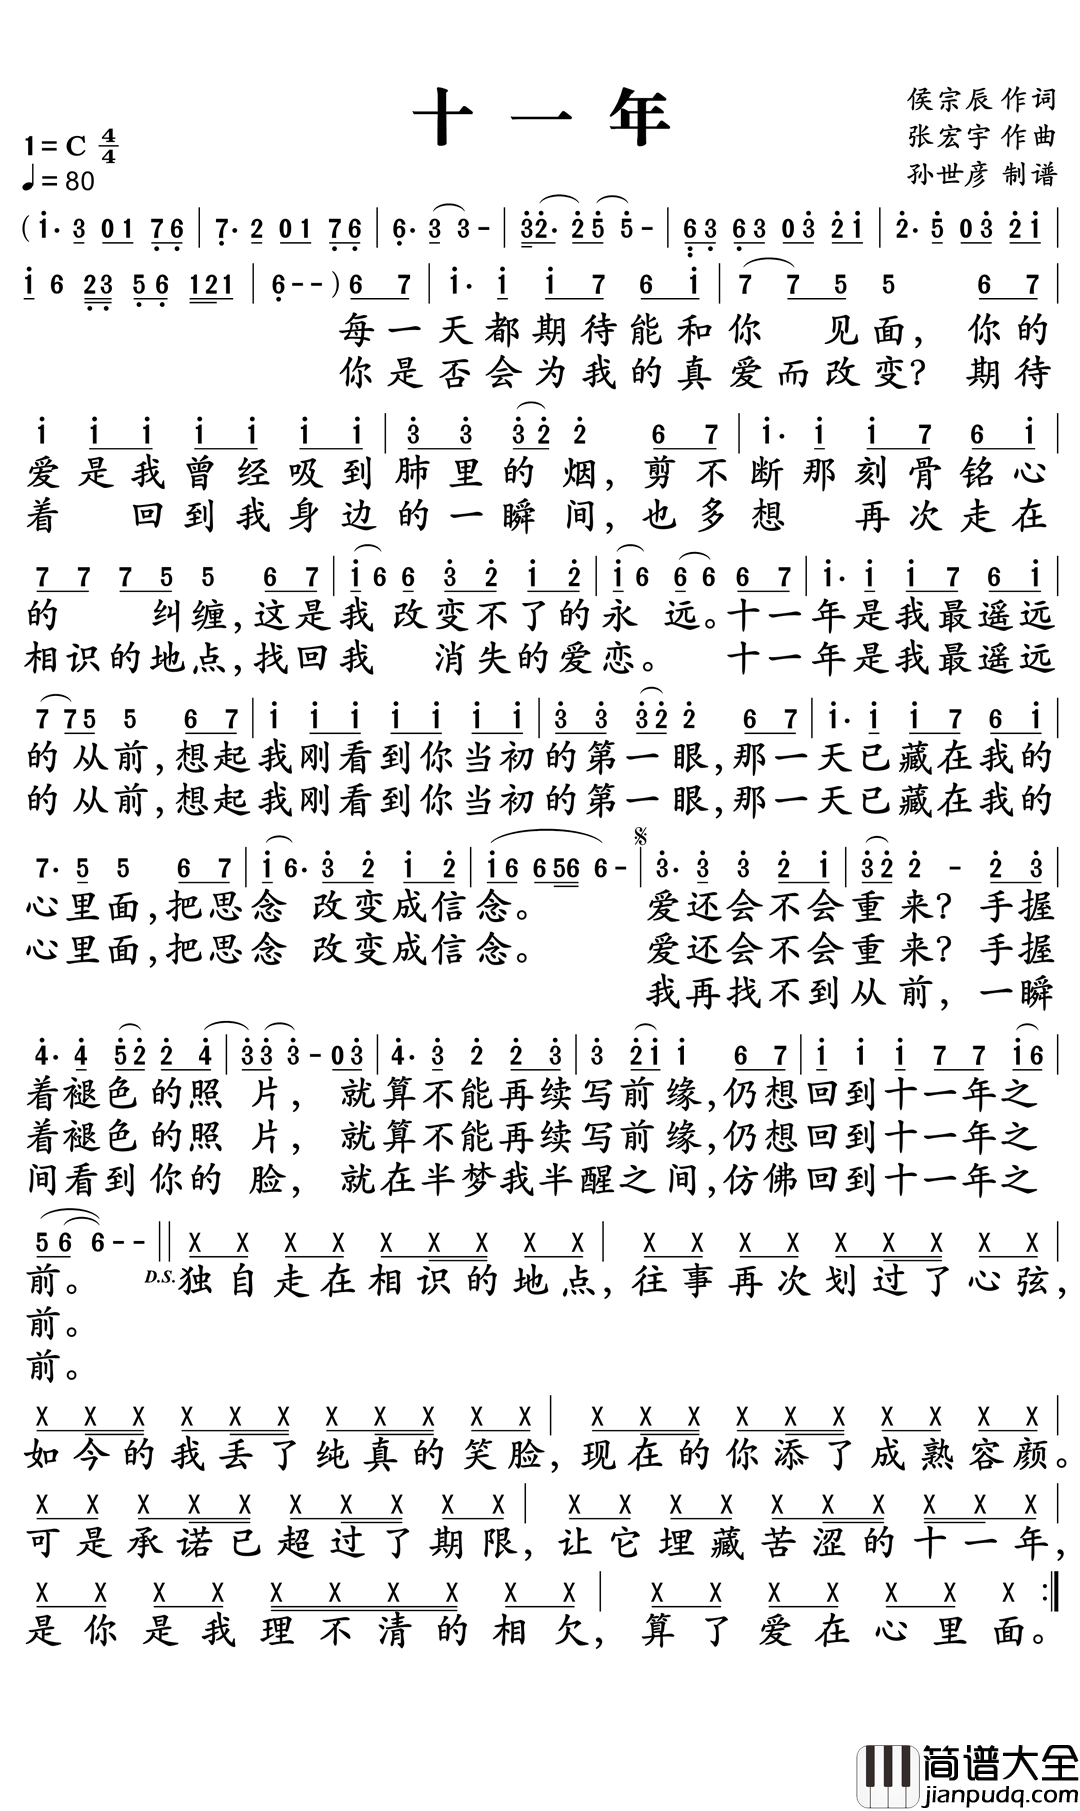 十一年
侯宗辰 作词
张宏宇 作曲
孙世彦 制谱
1=C 4/4
♩=80
(1· 3 01 76 | 7· 2 01 76 | 6· 3 3 - | 32· 25 5 - | 63 63 03 21 | 2· 5 03 21 |
1 6 23 56 121 | 6 - - ) 6 7 | 1· 1 1 7 6 1 | 7 7 5 5 6 7 |
每一天都期待能和你 见面, 你的
你是否会为我的真爱而改变? 期待
1 1 1 1 1 1 1 | 3 3 32 2 6 7 | 1· 1 1 7 6 1 |
爱是我曾经吸到肺里的烟, 剪不断那刻骨铭心
着 回到我身边的一瞬间, 也多想 再次走在
7 7 7 5 5 6 7 | 16 6 3 2 1 2 | 16 66 67 | 1· 1 1 7 6 1 |
的 纠缠, 这是我 改变不了的永 远。十一年是我最遥远
相识的地点, 找回我 消失的爱恋。 十一年是我最遥远
7 75 5 6 7 | 1 1 1 1 1 1 1 | 3 3 32 2 6 7 | 1· 1 1 7 6 1 |
的从前, 想起我刚看到你当初的第一眼, 那一天已藏在我的
的从前, 想起我刚看到你当初的第一眼, 那一天已藏在我的
7· 5 5 6 7 | 1 6· 3 2 1 2 | 16 656 6 - | 3· 3 3 2 1 | 32 2 - 2 3 |
心里面, 把思念 改变成信念。 爱还会不会重来? 手握
心里面, 把思念 改变成信念。 爱还会不会重来? 手握
我再找不到从前, 一瞬
4· 4 52 2 4 | 33 3 - 03 | 4· 3 2 2 3 | 3 21 1 6 7 | 1 1 1 7 7 16 |
着褪色的照 片, 就算不能再续写前缘, 仍想回到十一年之
着褪色的照 片, 就算不能再续写前缘, 仍想回到十一年之
间看到你的 脸, 就在半梦我半醒之间, 仿佛回到十一年之
56 6 - - || X X X X X X X X X | X X X X X X X X |
前。 D.S. 独自走在相识的地点, 往事再次划过了心弦,
前。
前。
X X X X X X X X X X X | X X X X X X X X X X
如今的我丢了纯真的笑脸, 现在的你添了成熟容颜。
X X X X X X X X X X | X X X X X X X X X X |
可是承诺已超过了期限, 让它埋藏苦涩的十一年,
X X X X X X X X X X | X X X X X X X :||
是你是我理不清的相欠, 算了爱在心里面。
简谱大全
jianpudq.com